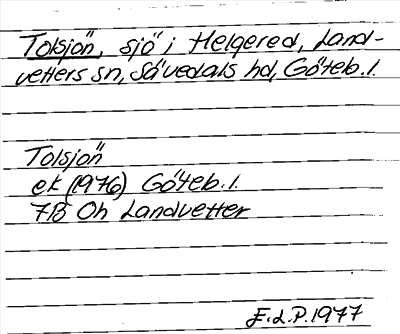 Tolsjön, sjö i Helgered, Land-
vetters sn, Sävedals hd, Göteb. l.
Tolsjön
ek (1976) Göteb. l.
7B Oh Landvetter
E.L.P. 1977